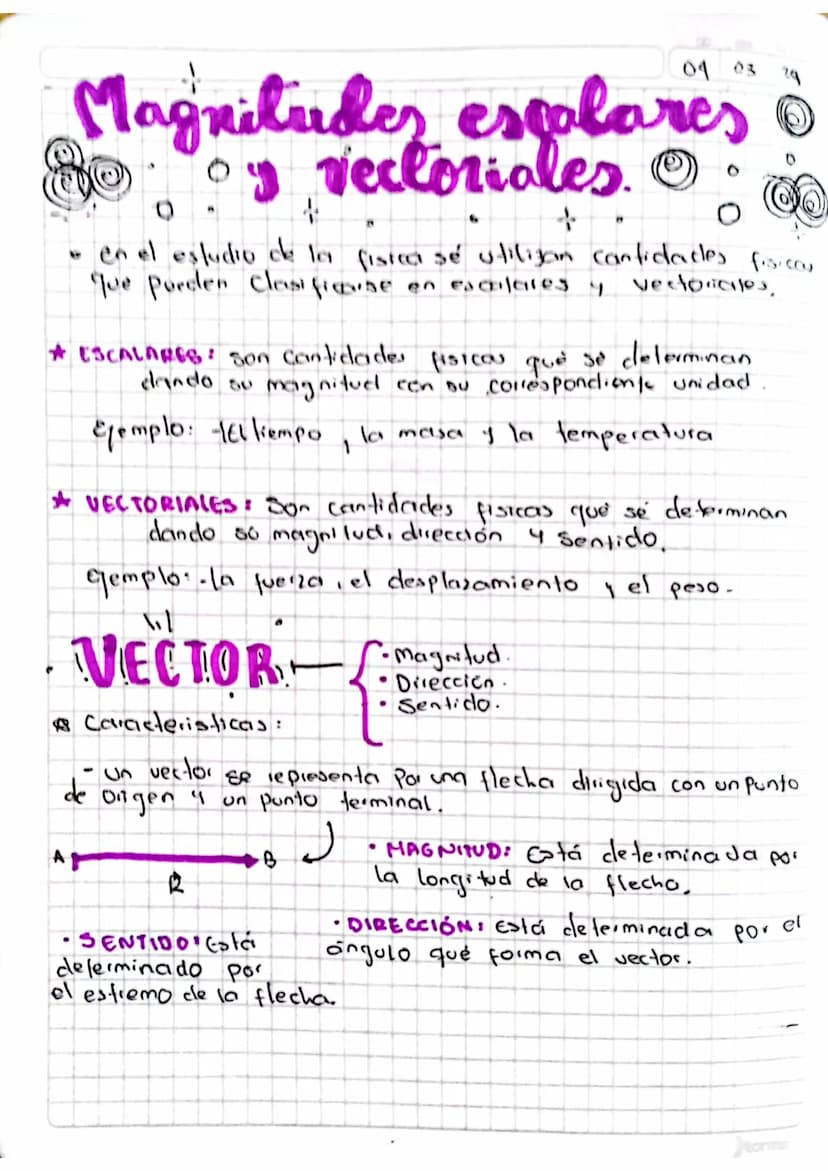 09 03 29
Magnitudes escalares
y vectoriales.
• en el estudio de la fisica sé utilizan cantidades fisicas
que pueden clasificarse en escalares y vectoriales.
★ ESCALARES: son cantidades fisicas qué sé determinan
dando su magnitud con su correspondiente unidad.
Ejemplo: El tiempo, la masa y la temperatura
★ VECTORIALES: Son cantidades fisicas qué sé determinan
dando su magnitud, dirección y sentido.
ejemplo: la fuerza, el desplazamiento y el peso.
VECTOR
• Magnitud.
• Dirección.
• Sentido.
Caracteristicas:
- un vector se representa por una flecha dirigida con un punto
de origen y un punto terminal.
A B
• MAGNITUD: Está determinada por
la longitud de la flecha.
• DIRECCIÓN: Está determinada por el
ángulo qué forma el vector.
• SENTIDO: Está
determinado por
el estremo de la flecha.